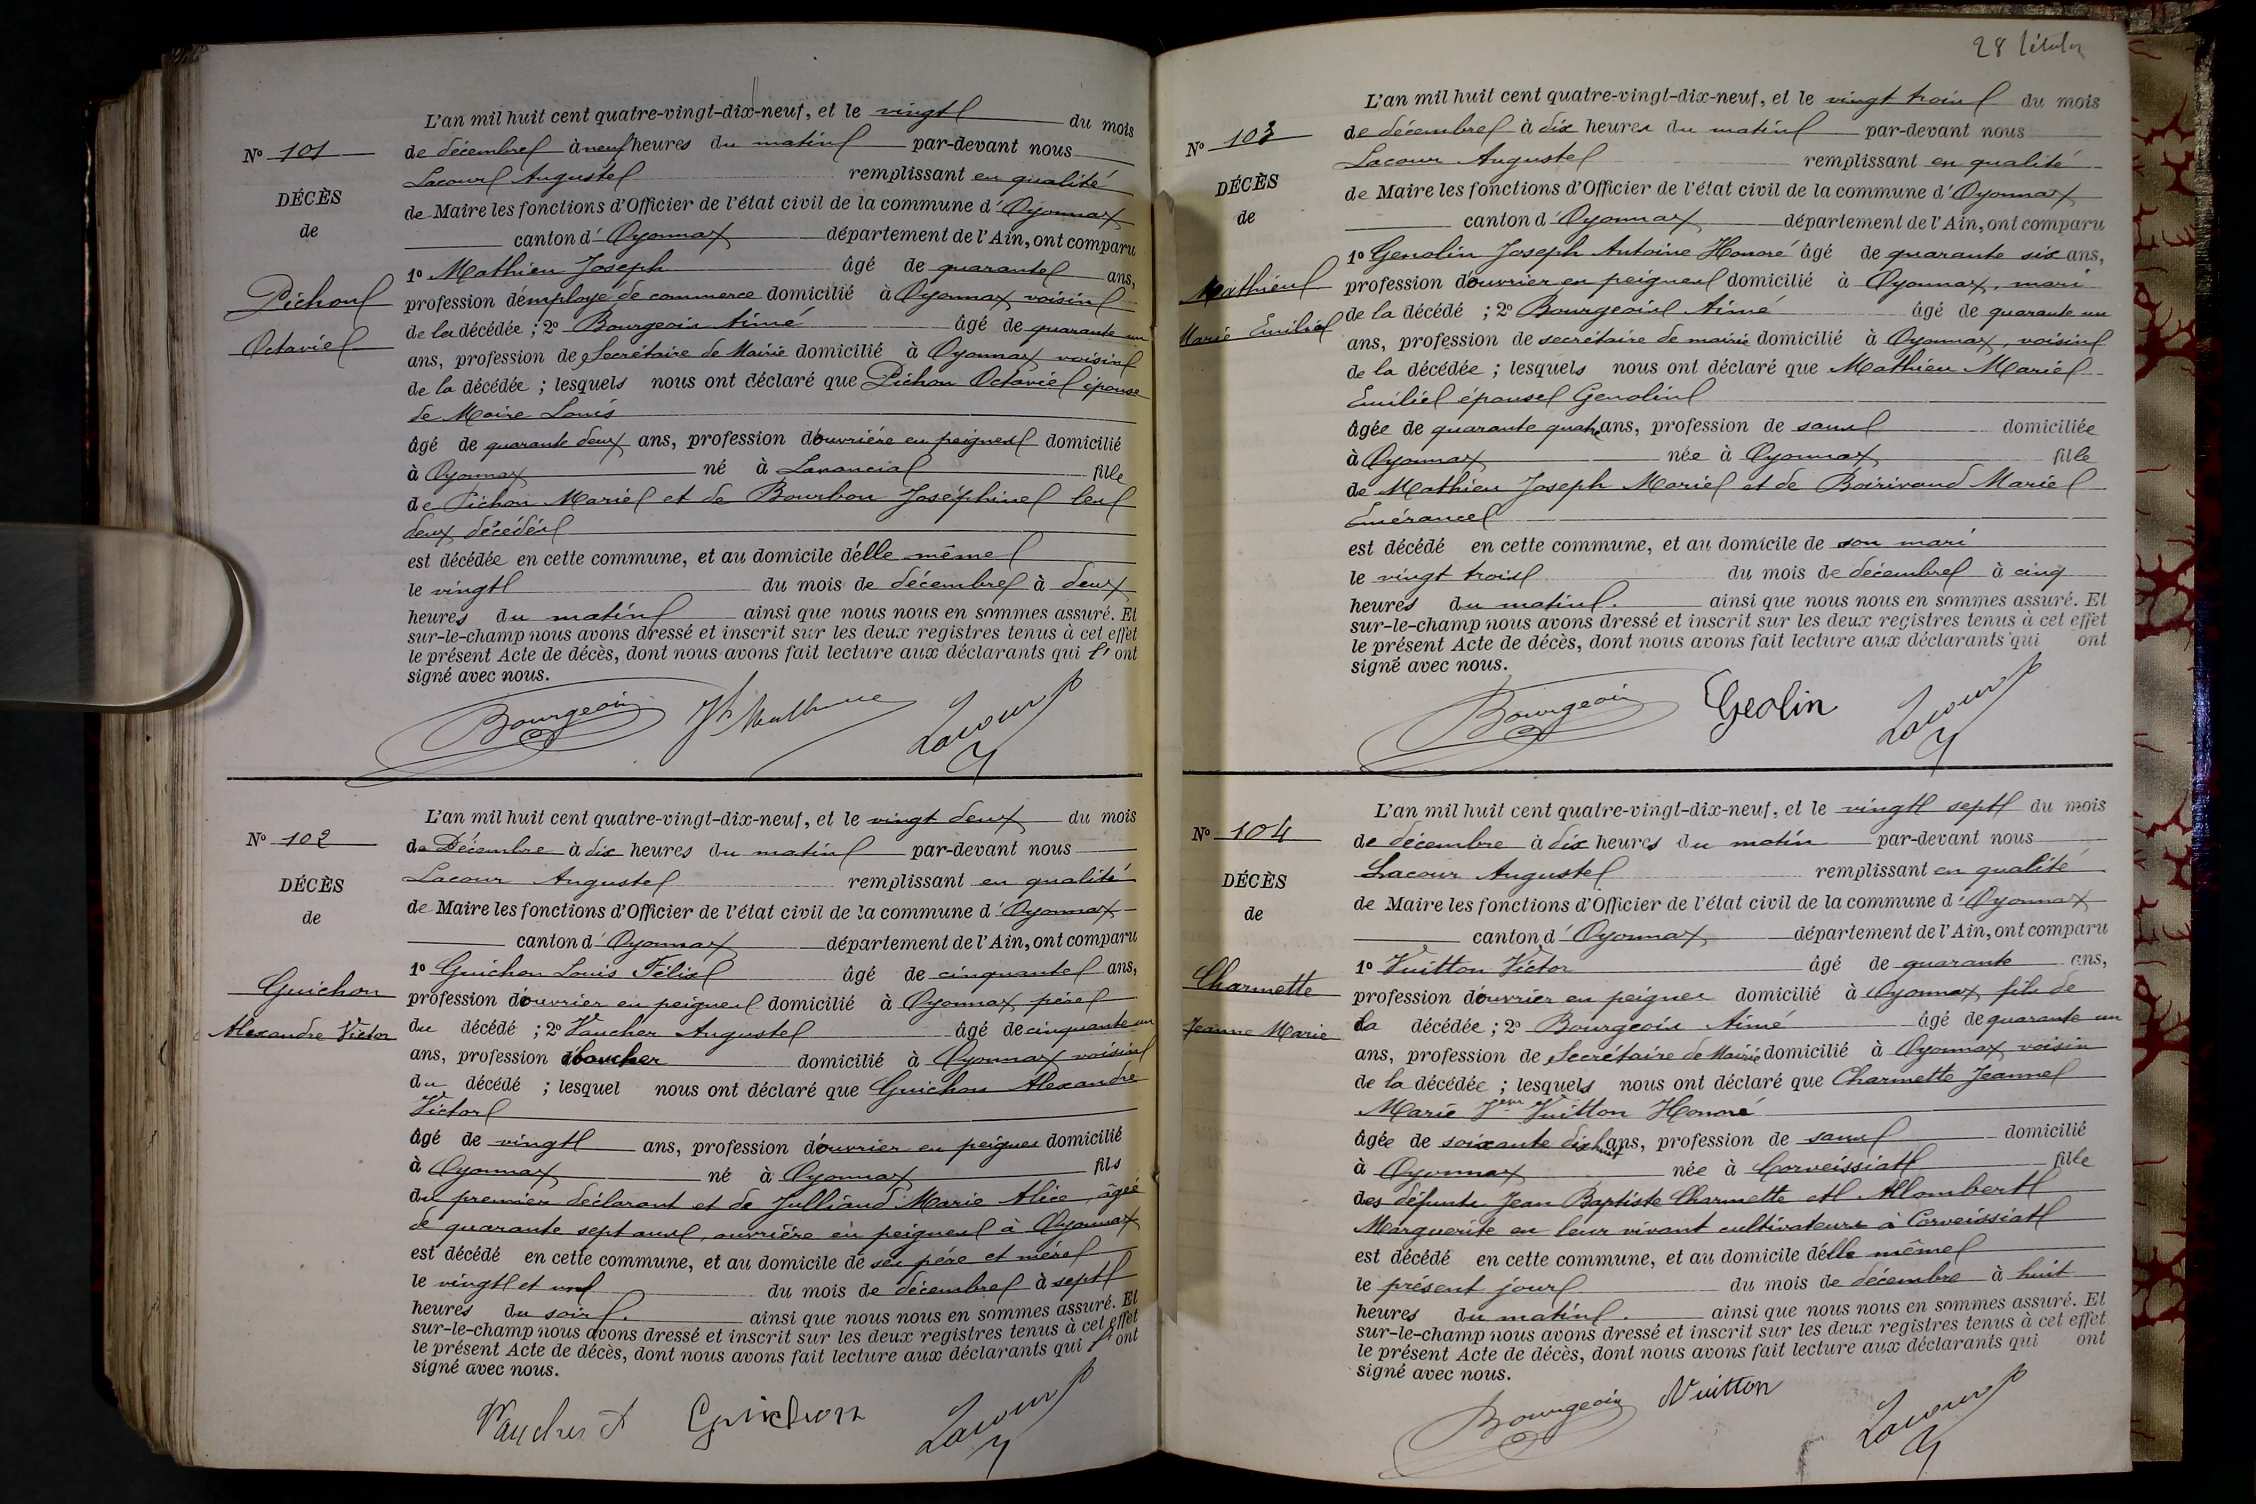 L'an mil huit cent quatre-vingt-dix-neuf, et le vingt du mois
Nº 101
de décembre à neuf heures du matin par-devant nous
Lacour Auguste remplissant en qualité
DÉCÈS
de Maire les fonctions d'Officier de l'état civil de la commune d'Oyonnax
de
canton d'Oyonnax département de l'Ain, ont comparu
1º Mathieu Joseph âgé de quarante ans,
Pichon
profession d'employé de commerce domicilié à Oyonnax voisin
de la décédée ; 2º Bourgeois Aimé âgé de quarante un
Octavie
ans, profession de Secrétaire de Mairie domicilié à Oyonnax voisin
de la décédée ; lesquels nous ont déclaré que Pichon Octavie épouse
de Moire Louis
âgé de quarante deux ans, profession d'ouvrière en peignes domicilié
à Oyonnax né à Lavancia fille
de Pichon Marie et de Bourbon Joséphine les
deux décédés
est décédée en cette commune, et au domicile d'elle même
le vingt du mois de décembre à deux
heures du matin ainsi que nous nous en sommes assuré. Et
sur-le-champ nous avons dressé et inscrit sur les deux registres tenus à cet effet
le présent Acte de décès, dont nous avons fait lecture aux déclarants qui l'ont
signé avec nous.
Bourgeois Jh Mathieu Lacour
L'an mil huit cent quatre-vingt-dix-neuf, et le vingt deux du mois
Nº 102
de Décembre à dix heures du matin par-devant nous
Lacour Auguste remplissant en qualité
DÉCÈS
de Maire les fonctions d'Officier de l'état civil de la commune d'Oyonnax
de
canton d'Oyonnax département de l'Ain, ont comparu
1º Guichon Louis Félix âgé de cinquante ans,
Guichon
profession d'ouvrier en peignes domicilié à Oyonnax père
du décédé ; 2º Vaucher Auguste âgé de cinquante un
Alexandre Victor
ans, profession de boucher domicilié à Oyonnax voisin
du décédé ; lesquel nous ont déclaré que Guichon Alexandre
Victor
âgé de vingt ans, profession d'ouvrier en peignes domicilié
à Oyonnax né à Oyonnax fils
du premier déclarant et de Julliand Marie Alice, âgée
de quarante sept ans, ouvrière en peignes à Oyonnax
est décédé en cette commune, et au domicile de ses père et mère
le vingt et un du mois de décembre à sept
heures du soir. ainsi que nous nous en sommes assuré. Et
sur-le-champ nous avons dressé et inscrit sur les deux registres tenus à cet effet
le présent Acte de décès, dont nous avons fait lecture aux déclarants qui l'ont
signé avec nous.
Vaucher A Guichon Lacour
28
L'an mil huit cent quatre-vingt-dix-neuf, et le vingt trois du mois
Nº 103
de décembre à dix heures du matin par-devant nous
Lacour Auguste remplissant en qualité
DÉCÈS
de Maire les fonctions d'Officier de l'état civil de la commune d'Oyonnax
de
canton d'Oyonnax département de l'Ain, ont comparu
1º Genolin Joseph Antoine Honoré âgé de quarante six ans,
Mathieu
profession d'ouvrier en peignes domicilié à Oyonnax, mari
de la décédé ; 2º Bourgeois Aimé âgé de quarante un
Marie Emilie
ans, profession de secrétaire de mairie domicilié à Oyonnax, voisin
de la décédée ; lesquels nous ont déclaré que Mathieu Marie
Emilie épouse Genolin
âgée de quarante quatre ans, profession de sans domiciliée
à Oyonnax née à Oyonnax fille
de Mathieu Joseph Marie et de Boirivand Marie
Emérance
est décédé en cette commune, et au domicile de son mari
le vingt trois du mois de décembre à cinq
heures du matin. ainsi que nous nous en sommes assuré. Et
sur-le-champ nous avons dressé et inscrit sur les deux registres tenus à cet effet
le présent Acte de décès, dont nous avons fait lecture aux déclarants qui ont
signé avec nous.
Bourgeois Geolin Lacour
L'an mil huit cent quatre-vingt-dix-neuf, et le vingt sept du mois
Nº 104
de décembre à dix heures du matin par-devant nous
Lacour Auguste remplissant en qualité
DÉCÈS
de Maire les fonctions d'Officier de l'état civil de la commune d'Oyonnax
de
canton d'Oyonnax département de l'Ain, ont comparu
1º Vuitton Victor âgé de quarante ans,
Charmette
profession d'ouvrier en peignes domicilié à Oyonnax fils de
la décédée ; 2º Bourgeois Aimé âgé de quarante un
Jeanne Marie
ans, profession de Secrétaire de Mairie domicilié à Oyonnax voisin
de la décédée ; lesquels nous ont déclaré que Charmette Jeanne
Marie Veuve Vuitton Honoré
âgée de soixante dix huit ans, profession de sans domicilié
à Oyonnax née à Corveissiat fille
des défunts Jean Baptiste Charmette et Allombert
Marguerite en leur vivant cultivateurs à Corveissiat
est décédé en cette commune, et au domicile d'elle même
le présent jour du mois de décembre à huit
heures du matin. ainsi que nous nous en sommes assuré. Et
sur-le-champ nous avons dressé et inscrit sur les deux registres tenus à cet effet
le présent Acte de décès, dont nous avons fait lecture aux déclarants qui ont
signé avec nous.
Bourgeois Vuitton Lacour